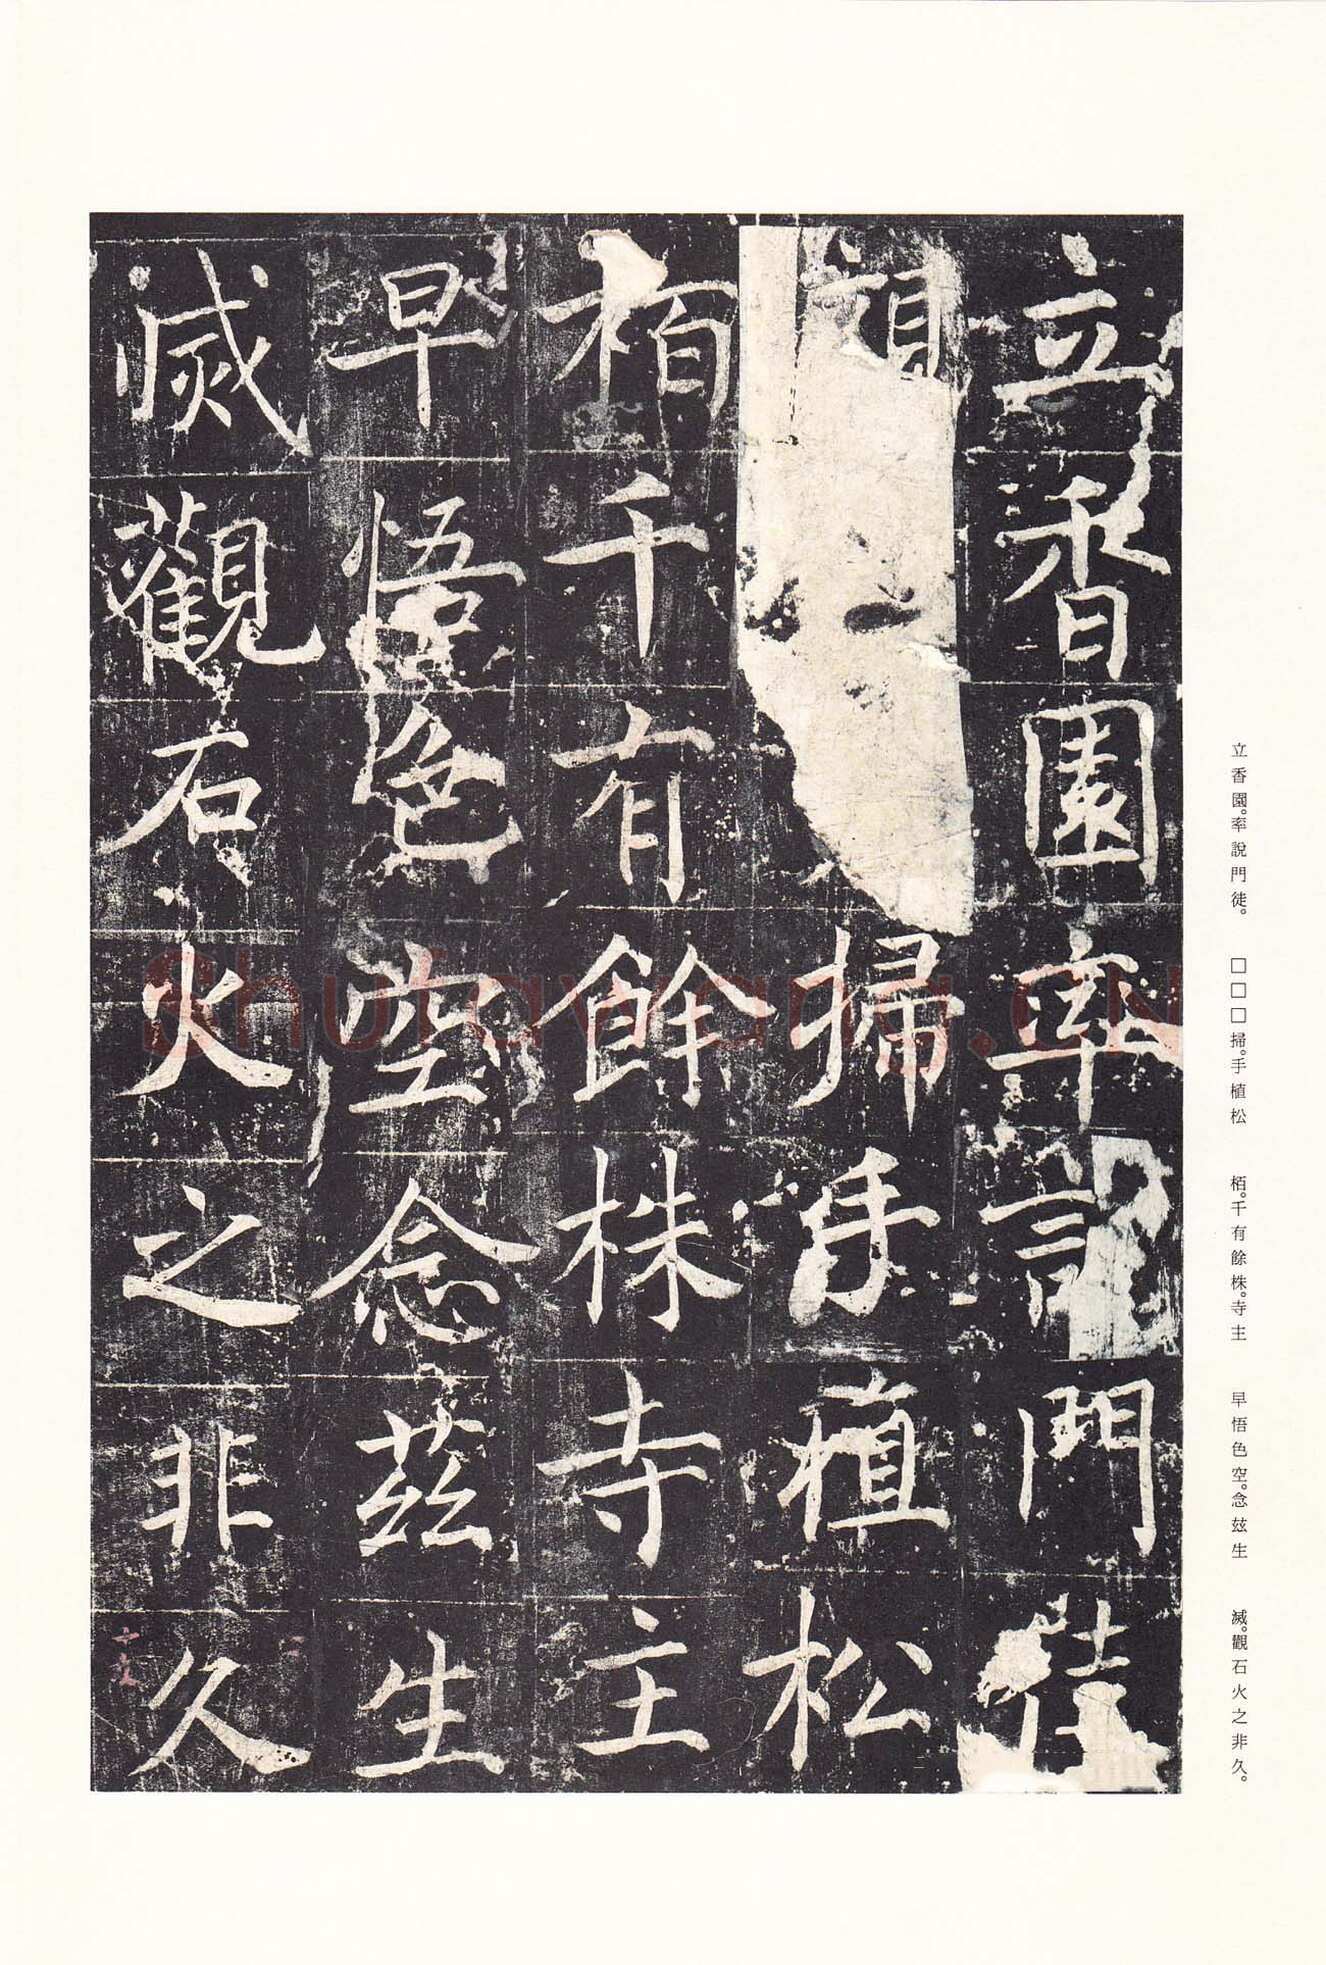 立香園率說門徒
掃手植松
栢千有餘株寺主
早悟色空念茲生
滅觀石火之非久
立香園。率說門徒。
□□□掃。手植松
栢。千有餘株。寺主
早悟色空。念茲生
滅。觀石火之非久。
shufawang.CN